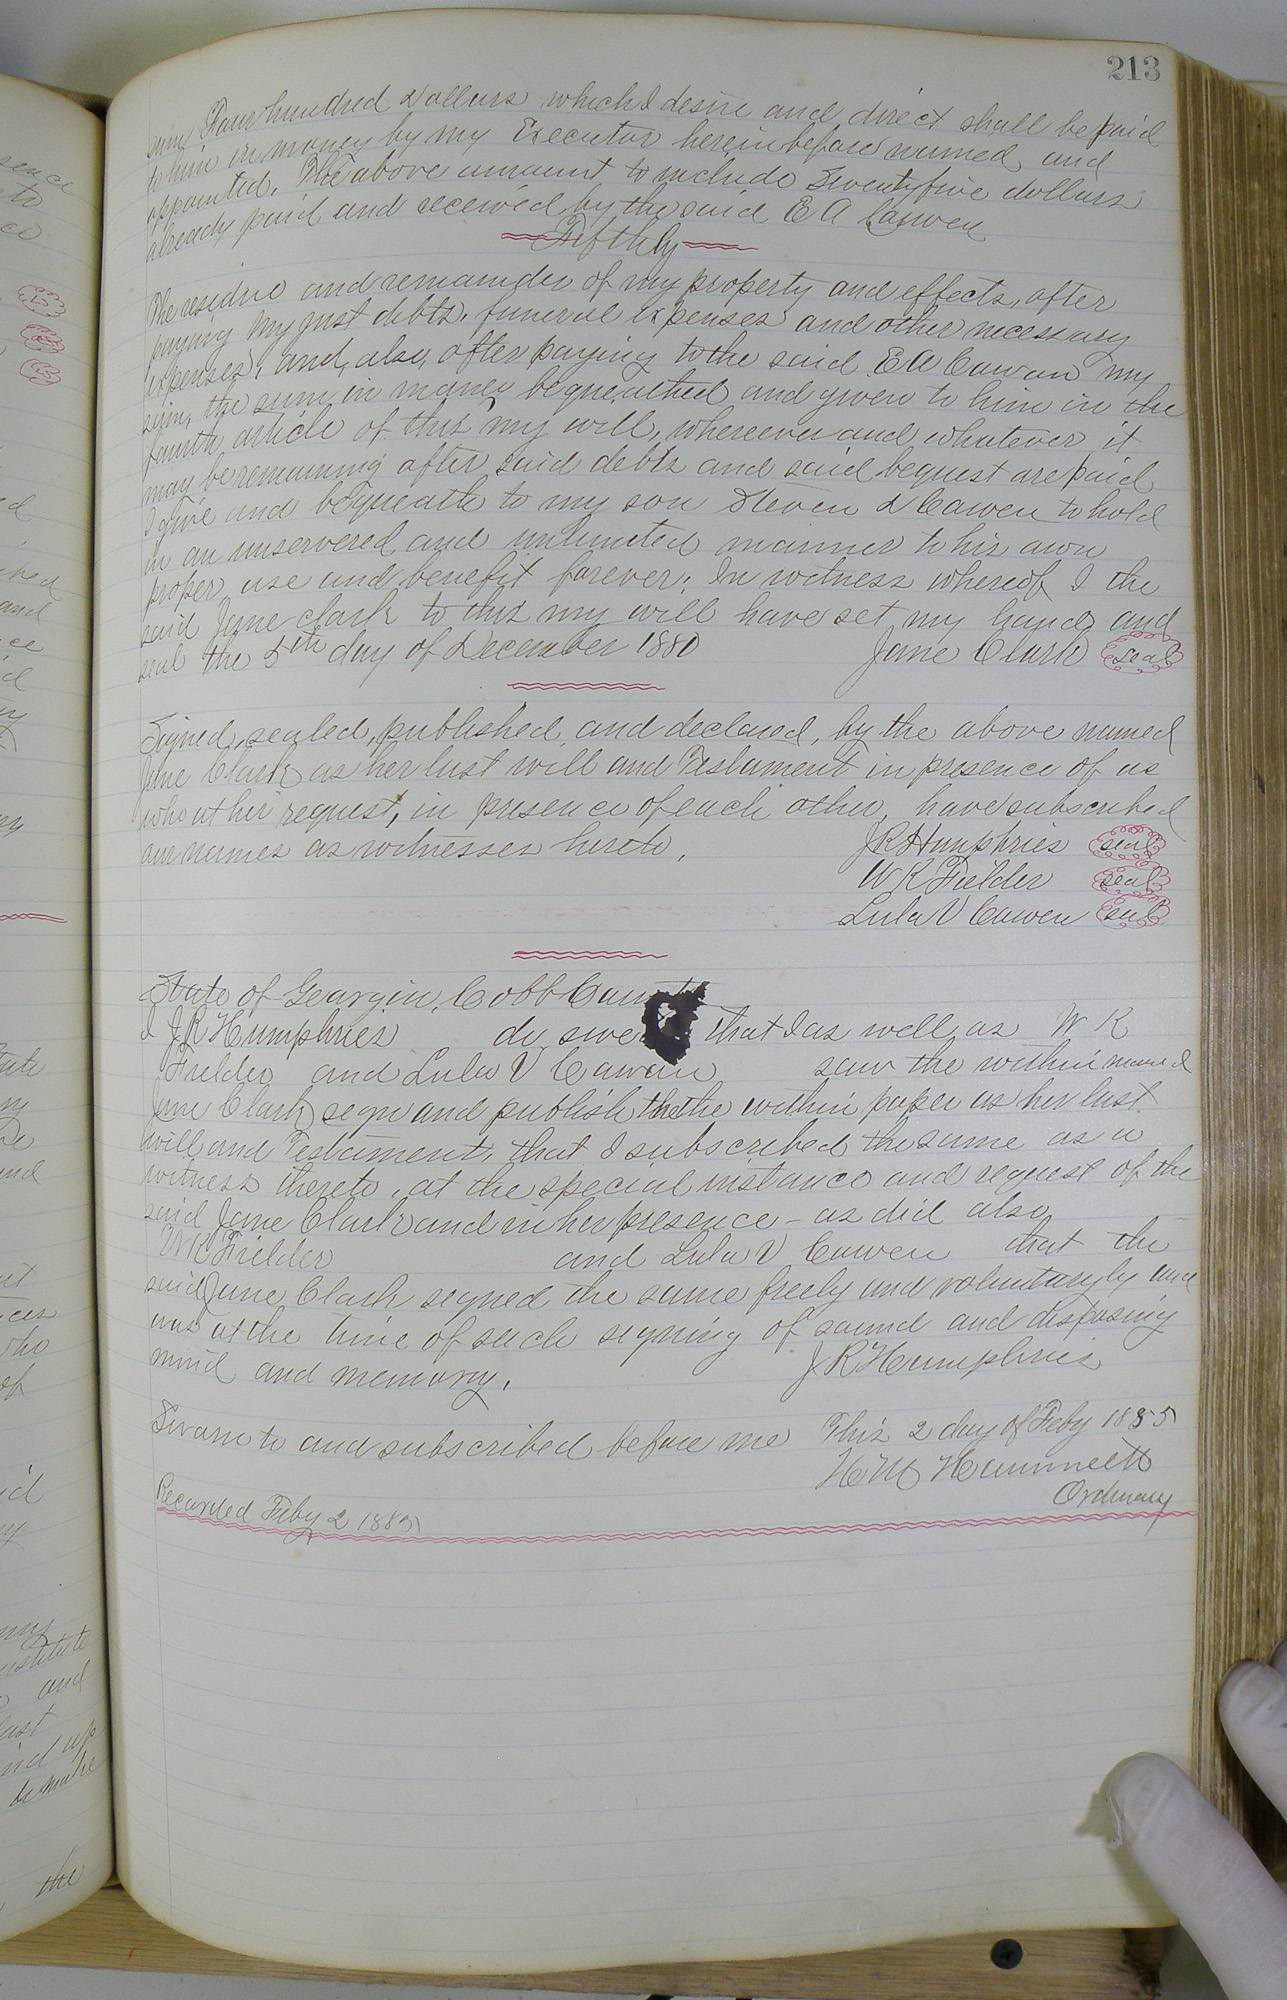 213
sum Four hundred Dollars which I desire and direct shall be paid
to him in money by my Executor hereinbefore named and
appointed. The above amount to include Seventyfive dollars
already paid and received by the said E A Cawen
Fifthly
The residue and remainder of my property and effects, after
paying my just debts, funeral expenses and other necessary
expenses, and, also, after paying to the said E A Cawen my
son, the sum in money bequeathed and given to him in the
fourth article of this my will, wherever and whatever it
may be remaining after said debts and said bequest are paid
I give and bequeath to my son Steven D Cawen to hold
in an unservered and unlimited manner to his own
proper use and benefit forever. In witness whereof I the
said Jane Clark to this my will have set my hand and
seal the 5th day of December 1880 Jane Clark seal
Signed, sealed, published, and declared, by the above named
Jane Clark as her last will and Testament in presence of us
who at her request, in presence of each other, have subscribed
our names as witnesses hereto. J R Humphries seal
W R Fielder seal
Lula V Cawen seal
State of Georgia, Cobb County
I J R Humphries do swear that I as well as W R
Fielder and Lula V Cawen saw the within named
Jane Clark sign and publish the the within paper as her last
will and Testament, that I subscribed the same as a
witness thereto, at the special instance and request of the
said Jane Clark and in her presence - as did also
W R Fielder and Lula V Cawen that the
said Jane Clark signed the same freely and voluntarily and
was at the time of such signing of sound and disposing
mind and memory. J R Humphries
Sworn to and subscribed before me This 2 day of Feby 1885
H M Hammett
Ordinary
Recorded Feby 2 1885